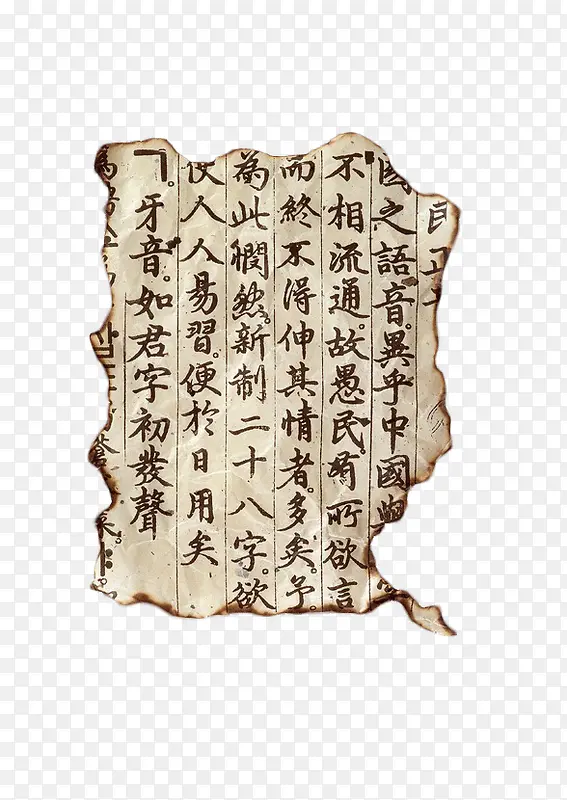 國之語音。異乎中國與
不相流通。故愚民。有所欲言
而終不得伸其情者。多矣。予。
為此憫然。新制二十八字。欲
使人人易習。便於日用矣
ㄱ。牙音。如君字初發聲